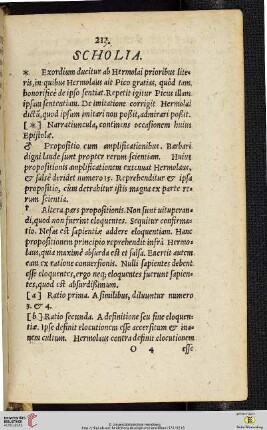 213.
SCHOLIA.
* Exordium ducitur ab Hermolai prioribus lite-
ris, in quibus Hermolaus ait Pico gratias, quòd tam
honorificè de ipso sentiat. Repetit igitur Picus illam
ipsam sententiam. De imitatione corrigit Hermolai
dictũ, quòd ipsum imitari non possit, admirari possit.
[*] Narratiuncula, continens occasionem huius
Epistolæ.
Propositio cum amplificationibus. Barbari
digni laude sunt propter rerum scientiam. Huius
propositionis amplificationem extenuat Hermolaus,
& salsè deridet numero 15. Reprehenditur & ipsa
propositio, cùm detrahitur istis magna ex parte re-
rum scientia.
† Altera pars propositionis. Non sunt uituperan-
di, quòd non fuerint eloquentes. Sequitur confirma-
tio. Nefas est sapientiæ addere eloquentiam. Hanc
propositionem principiò reprehendit infrà Hermo-
laus, quia maximè absurda est et falsa. Euertit autem
eam ex ratione conuersionis. Nulli sapientes debent
esse eloquentes, ergo neq; eloquentes fuerunt sapien-
tes, quod est absurdissimum.
[a] Ratio prima. A similibus, diluuntur numero
3. & 4.
[b] Ratio secunda. A definitione seu fine eloquen-
tiæ. Ipse definit elocutionem esse accersitum & ina-
nem cultum. Hermolaus contrà definit elocutionem
O 4 esse